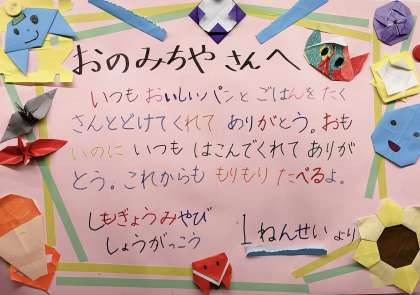 おのみちやさんへ
いつもおいしいパンとごはんをたく
さんとどけてくれてありがとう。おも
いのにいつもはこんでくれてありが
とう。これからももりもりたべるよ。
しもぎょうみやび
しょうがっこう
1ねんせいより